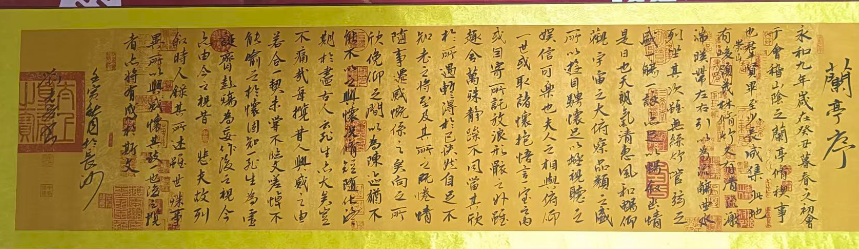 蘭亭序
永和九年歲在癸丑暮春之初會
于會稽山陰之蘭亭脩禊事
也群賢畢至少長咸集此地
有崇山峻領茂林脩竹又有清流激
湍暎帶左右引以為流觴曲水
列坐其次雖無絲竹管弦之
盛一觴一詠亦足以暢敘幽情
是日也天朗氣清惠風和暢仰
觀宇宙之大俯察品類之盛
所以遊目騁懷足以極視聽之
娛信可樂也夫人之相與俯仰
一世或取諸懷抱悟言一室之內
或因寄所託放浪形骸之外雖
趣舍萬殊靜躁不同當其欣
於所遇暫得於己快然自足不
知老之將至及其所之既惓情
隨事遷感慨係之矣向之所
欣俛仰之間以為陳迹猶不
能不以之興懷況脩短隨化終
期於盡古人云死生亦大矣豈
不痛哉每攬昔人興感之由
若合一契未嘗不臨文嗟悼不
能喻之於懷固知一死生為虛
誕齊彭殤為妄作後之視今
亦由今之視昔悲夫故列
敘時人錄其所述雖世殊事
異所以興懷其致一也後之攬
者亦將有感於斯文
壬寅秋月於